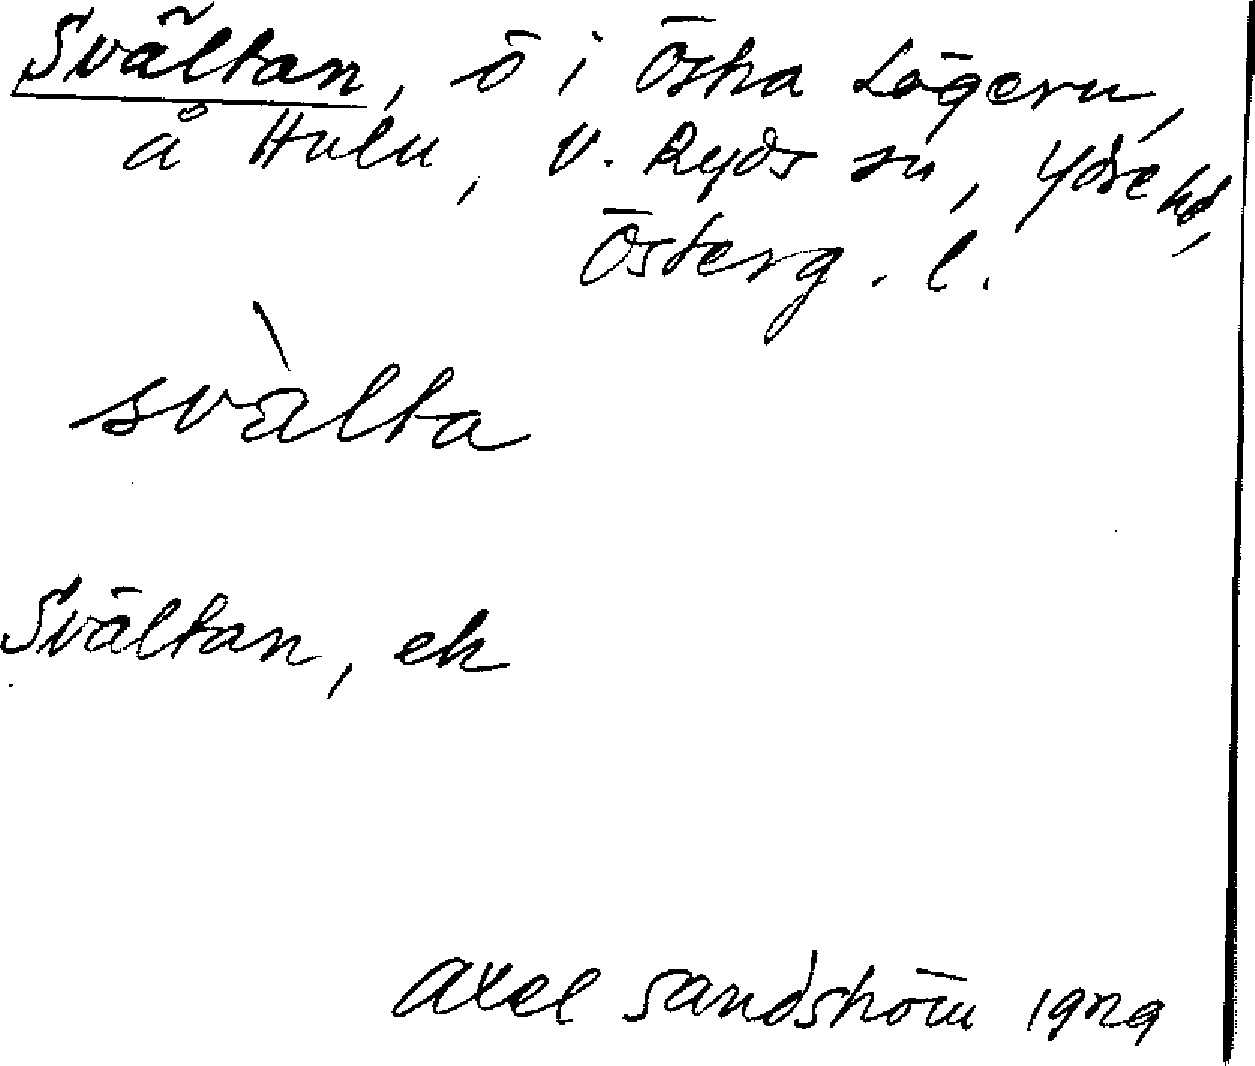 Svältan, ö i Östra Lägern,
å Hulu, V. Ryds sn, Ydre hd,
Österg. l.
svàlta
Svältan, ek
Axel Sandström 1929